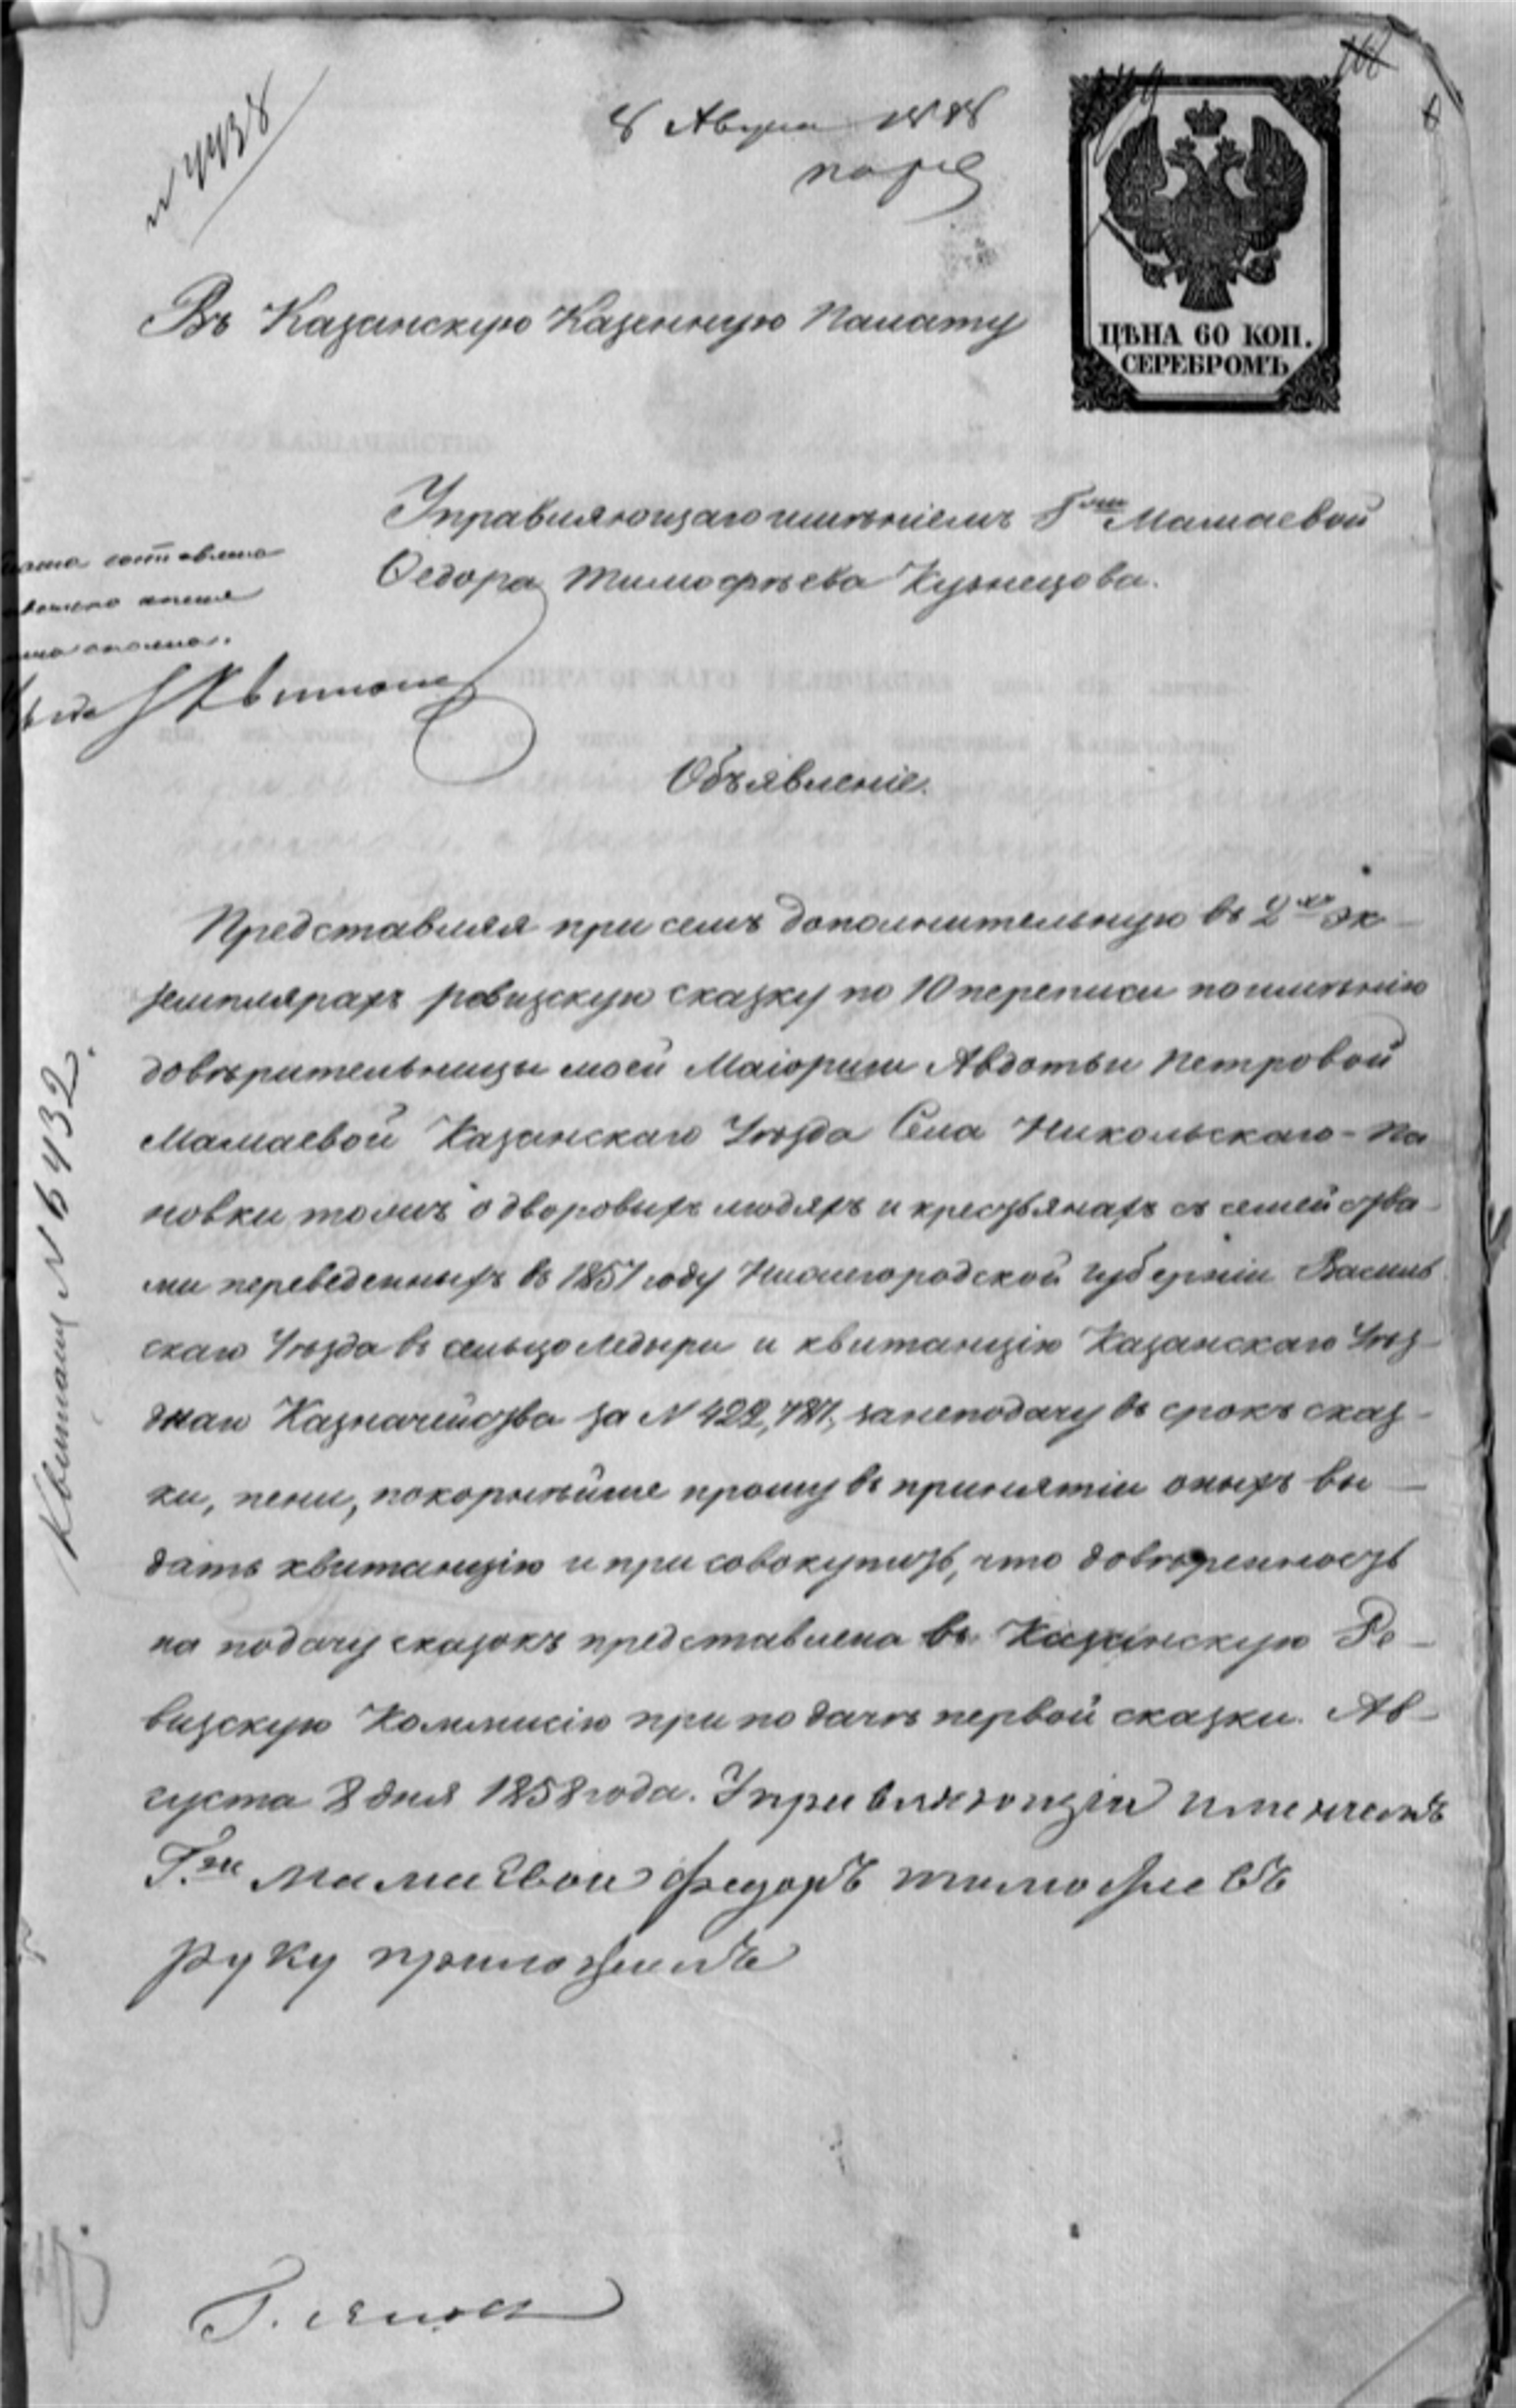 8 Августа 1858
Въ Казанскую Казенную Палату
ЦѢНА 60 КОП.
СЕРЕБРОМЪ
Управляющаго имѣніемъ Г–жи Мамаевой
Ѳедора Тимофѣева Кузнецова.
Объявленіе.
Представляя при семъ дополнительную въ 2хъ эк-
земплярахъ ревизскую сказку по 10 переписи по имѣнію
довѣрительницы моей Маіорши Авдотьи Петровой
Мамаевой Казанскаго Уѣзда Села Никольскаго-Па
новки тожъ о дворовыхъ людяхъ и крестьянахъ съ семейства-
ми переведенныхъ въ 1851 году Нижегородской губерніи Василь
скаго Уѣзда въ сельцо Ледыри и квитанцію Казанскаго Уѣз-
днаго Казначейства за N 422,787, за неподачу въ срокъ сказ-
ки, пени, покорнѣйше прошу въ принятіи оныхъ вы-
дать квитанцію и присовокупить, что довѣренность
на подачу сказокъ представлена въ Казанскую Ре-
визскую Коммисію при подачѣ первой сказки. Ав-
густа 8 дня 1858 года. Управляющій имениемъ
Г.жи Мамаевои Федоръ Тимофеевъ
руку приложилъ
Квитанц N 6432.